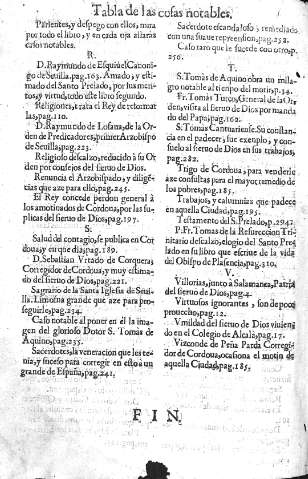 Tabla de las cosas notables.
Parientes, y despego con ellos, mira
por todo el libro, y en cada oja aliaràs
casos notables.
R.
D. Raymundo de Esquiuel, Canoni-
go de Seuilla. pag. 163. Amado, y esti-
mado del Santo Prelado, por sus meri-
tos, y virtud, todo este libro segundo.
Religiones, trata el Rey de reformar
las, pag. 110.
D. Raymundo de Losana, de la Or
den de Predicadores, primer Arzobispo
de Seuilla, pag. 223.
Religioso descalzo, reducido à su Or
den por consejos del sieruo de Dios.
Renuncia el Arzobispado, y diligẽ
cias que aze para ello, pag. 245.
El Rey concede perdon general à
los amotinados de Cordoua, por las su
plicas del sieruo de Dios, pag. 197.
S.
Salud del contagio, se publica en Cor
doua, y en que dia, pag. 189.
D. Sebastian Vrtado de Corquera,
Corregidor de Cordoua, y muy estima-
do del sieruo de Dios, pag. 221.
Sagrario de la Santa Iglesia de Seui-
lla. Limosna grande que aze para pro-
seguirle, pag. 234.
Caso notable al poner en èl la ima-
gen del glorioso Dotor S. Tomàs de
Aquino, pag. 235.
Sacerdotes, la veneracion que les te-
nia, y suceso para corregir en esto à un
grande de España, pag. 241.
Sacerdote escandaloso, y remediado
con una suaue reprension, pag. 252.
Caso raro que le sucede con otro, p.
256.
T.
S. Tomàs de Aquino obra un mila-
gro notable al tiempo del morir, p. 14.
Fr. Tomàs Turco, General de las Or
den, visita al sieruo de Dios por manda
do del Papa, pag. 110.
S. Tomàs Cantuariense. Su constan-
cia en el padecer; fue exemplo, y con-
suelo al sieruo de Dios en sus trabajos,
pag. 282.
Trigo de Cordoua, para venderle
aze consultas para el mayor remedio de
los pobres, pag. 185.
Trabajos, y calumnias que padece
en aquella Ciudad, pag. 195.
Testamento del S. Prelado, p. 294.
P. Fr. Tomàs de la Resurreccion Tri
nitario descalzo, elogio del Santo Pre
lado en su libro que escriue de la vida
del Obispo de Plasencia, pag. 110.
V.
Villorias, junto à Salamanca, Patria
del sieruo de Dios, pag. 4.
Virtuosos ignorantes, son de poco
prouecho, pag. 12.
Vmildad del sieruo de Dios viuien
do en el Colegio de Alcalà, pag. 17.
Vizconde de Peña Parda Corregi-
dor de Cordoua, ocasiona el motin de
aquella Ciudad, pag. 185.
FIN.